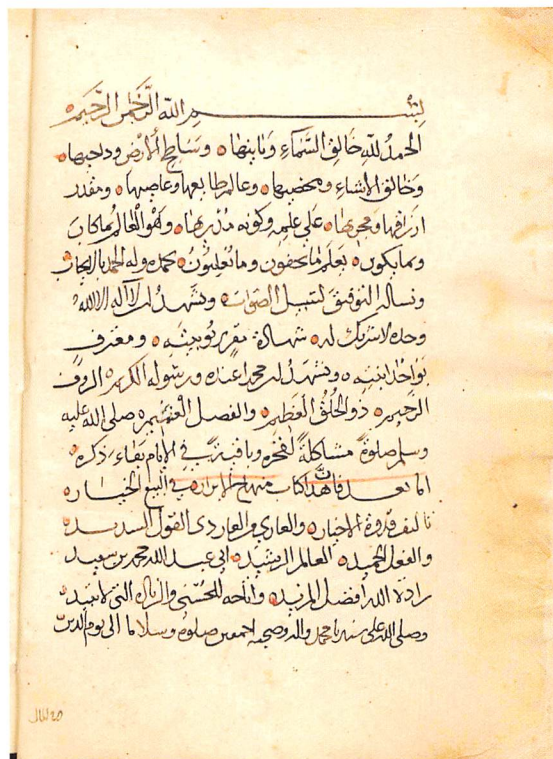 بسم الله الرحمن الرحيم
الحمد لله خالق السماء وبانيها وساطح الارض وداحيها
وخالق الاشياء ومحصيها وعالم طايعها وعاصيها ومقدر
ارزاقها ومجريها على علمه وكونه مدبرها وهو العالم بما كان
وبما يكون يعلم ما تخفون وما تعلنون نحمده وله الحمد بالايجاب
ونساله التوفيق لسبيل الصواب ونشهد ان لا اله الا الله
وحده لا شريك له شهادة مقر بربوبيته ومعترف
بواحدانيته ونشهد ان محمدا عبده ورسوله الكريم الروف
الرحيم ذو الخلق العظيم والفضل العميم صلى الله عليه
وسلم صلوة مشاكلة لفخره وباقية في الايام بقاء ذكره
اما بعد فان هذا كتاب منهاج الابرار في البيع الخيار
تاليف قدوة الاخيار والعاري والعار ذي القول السديد
والفعل الحميد العالم الرشيد ابي عبد الله محمد بن سعيد
زاده الله افضل المزيد واتاحه للحسنى والزيادة التي لا تبيد
وصلى الله على سيدنا محمد واله وصحبه اجمعين صلوة وسلاما الى يوم الدين